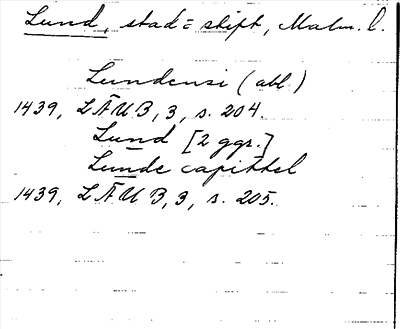 Lund, stad= skift, Malm. l.
Lundensi (abl.)
1439, LÄUB, 3, s. 204.
Lund [2 ggr.]
Lunde capittel
1439, LÄUB, 3, s. 205.